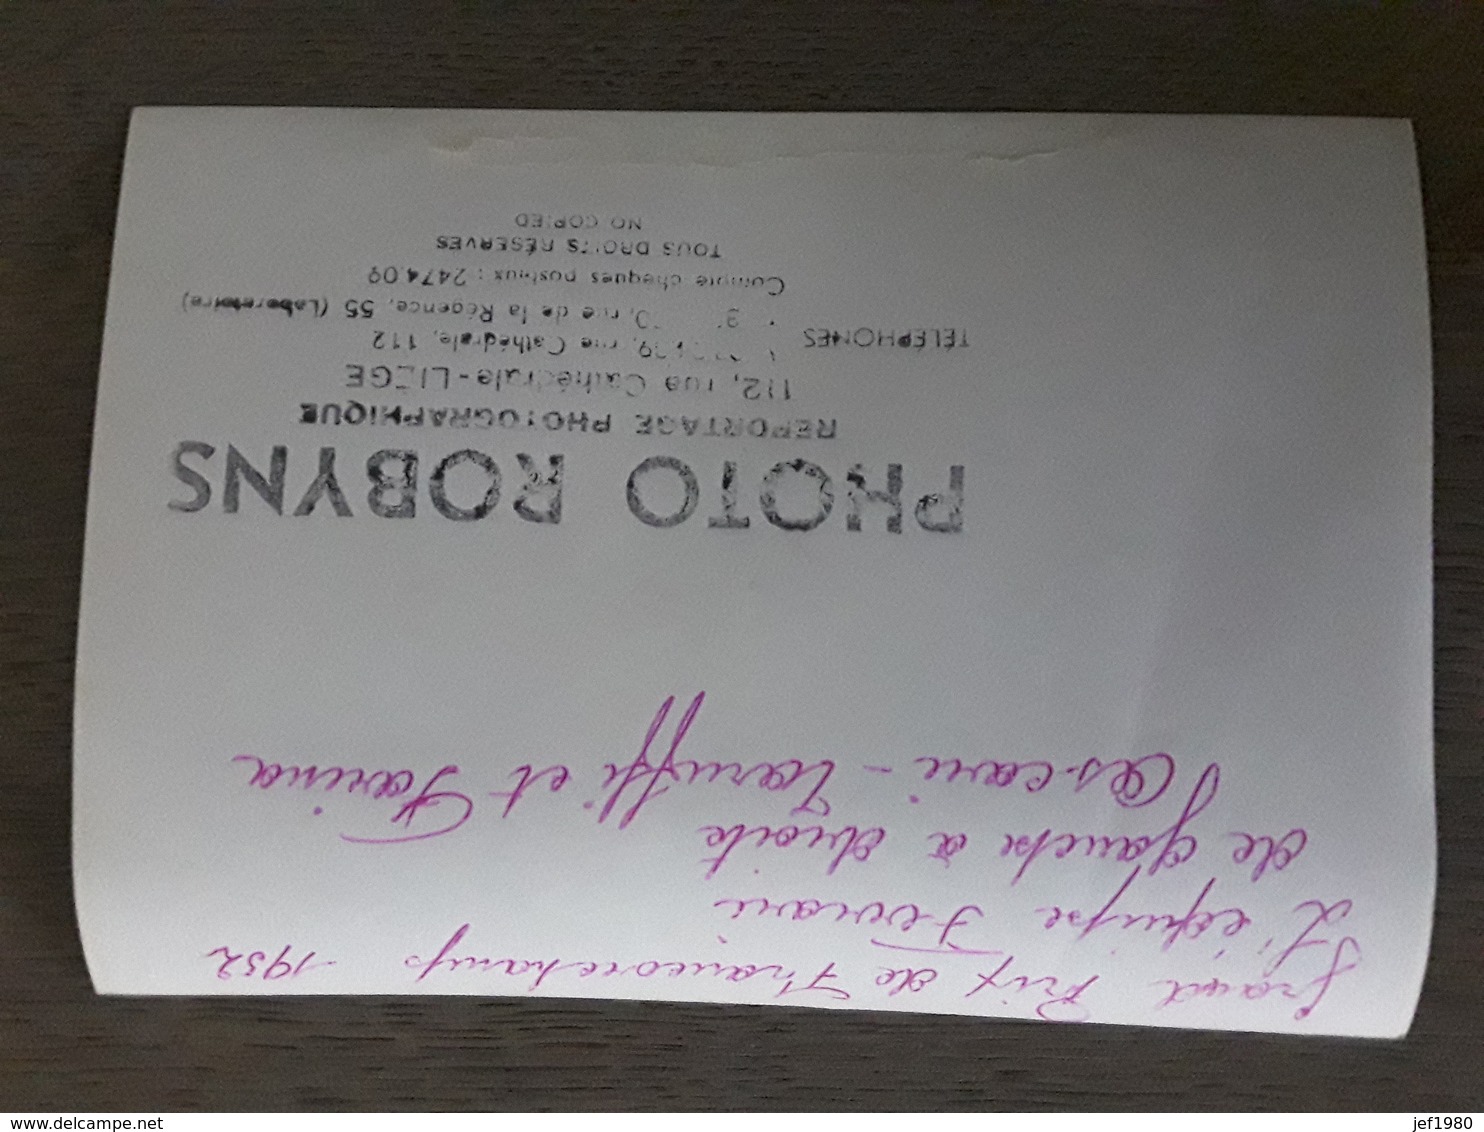 Grand Prix de Francorchamps - 1952
L'équipe Ferrari
de gauche à droite
Ascari - Taruffi et Farina
PHOTO ROBYNS
REPORTAGE PHOTOGRAPHIQUE
112, rue Cathédrale - LIÉGE
TÉLÉPHONES
rue Cathédrale, 112
rue de la Régence, 55 (Laboratoire)
Compte chèques postaux : 2474.09
TOUS DROITS RÉSERVÉS
NO COPIED
www.delcampe.net
jef1980